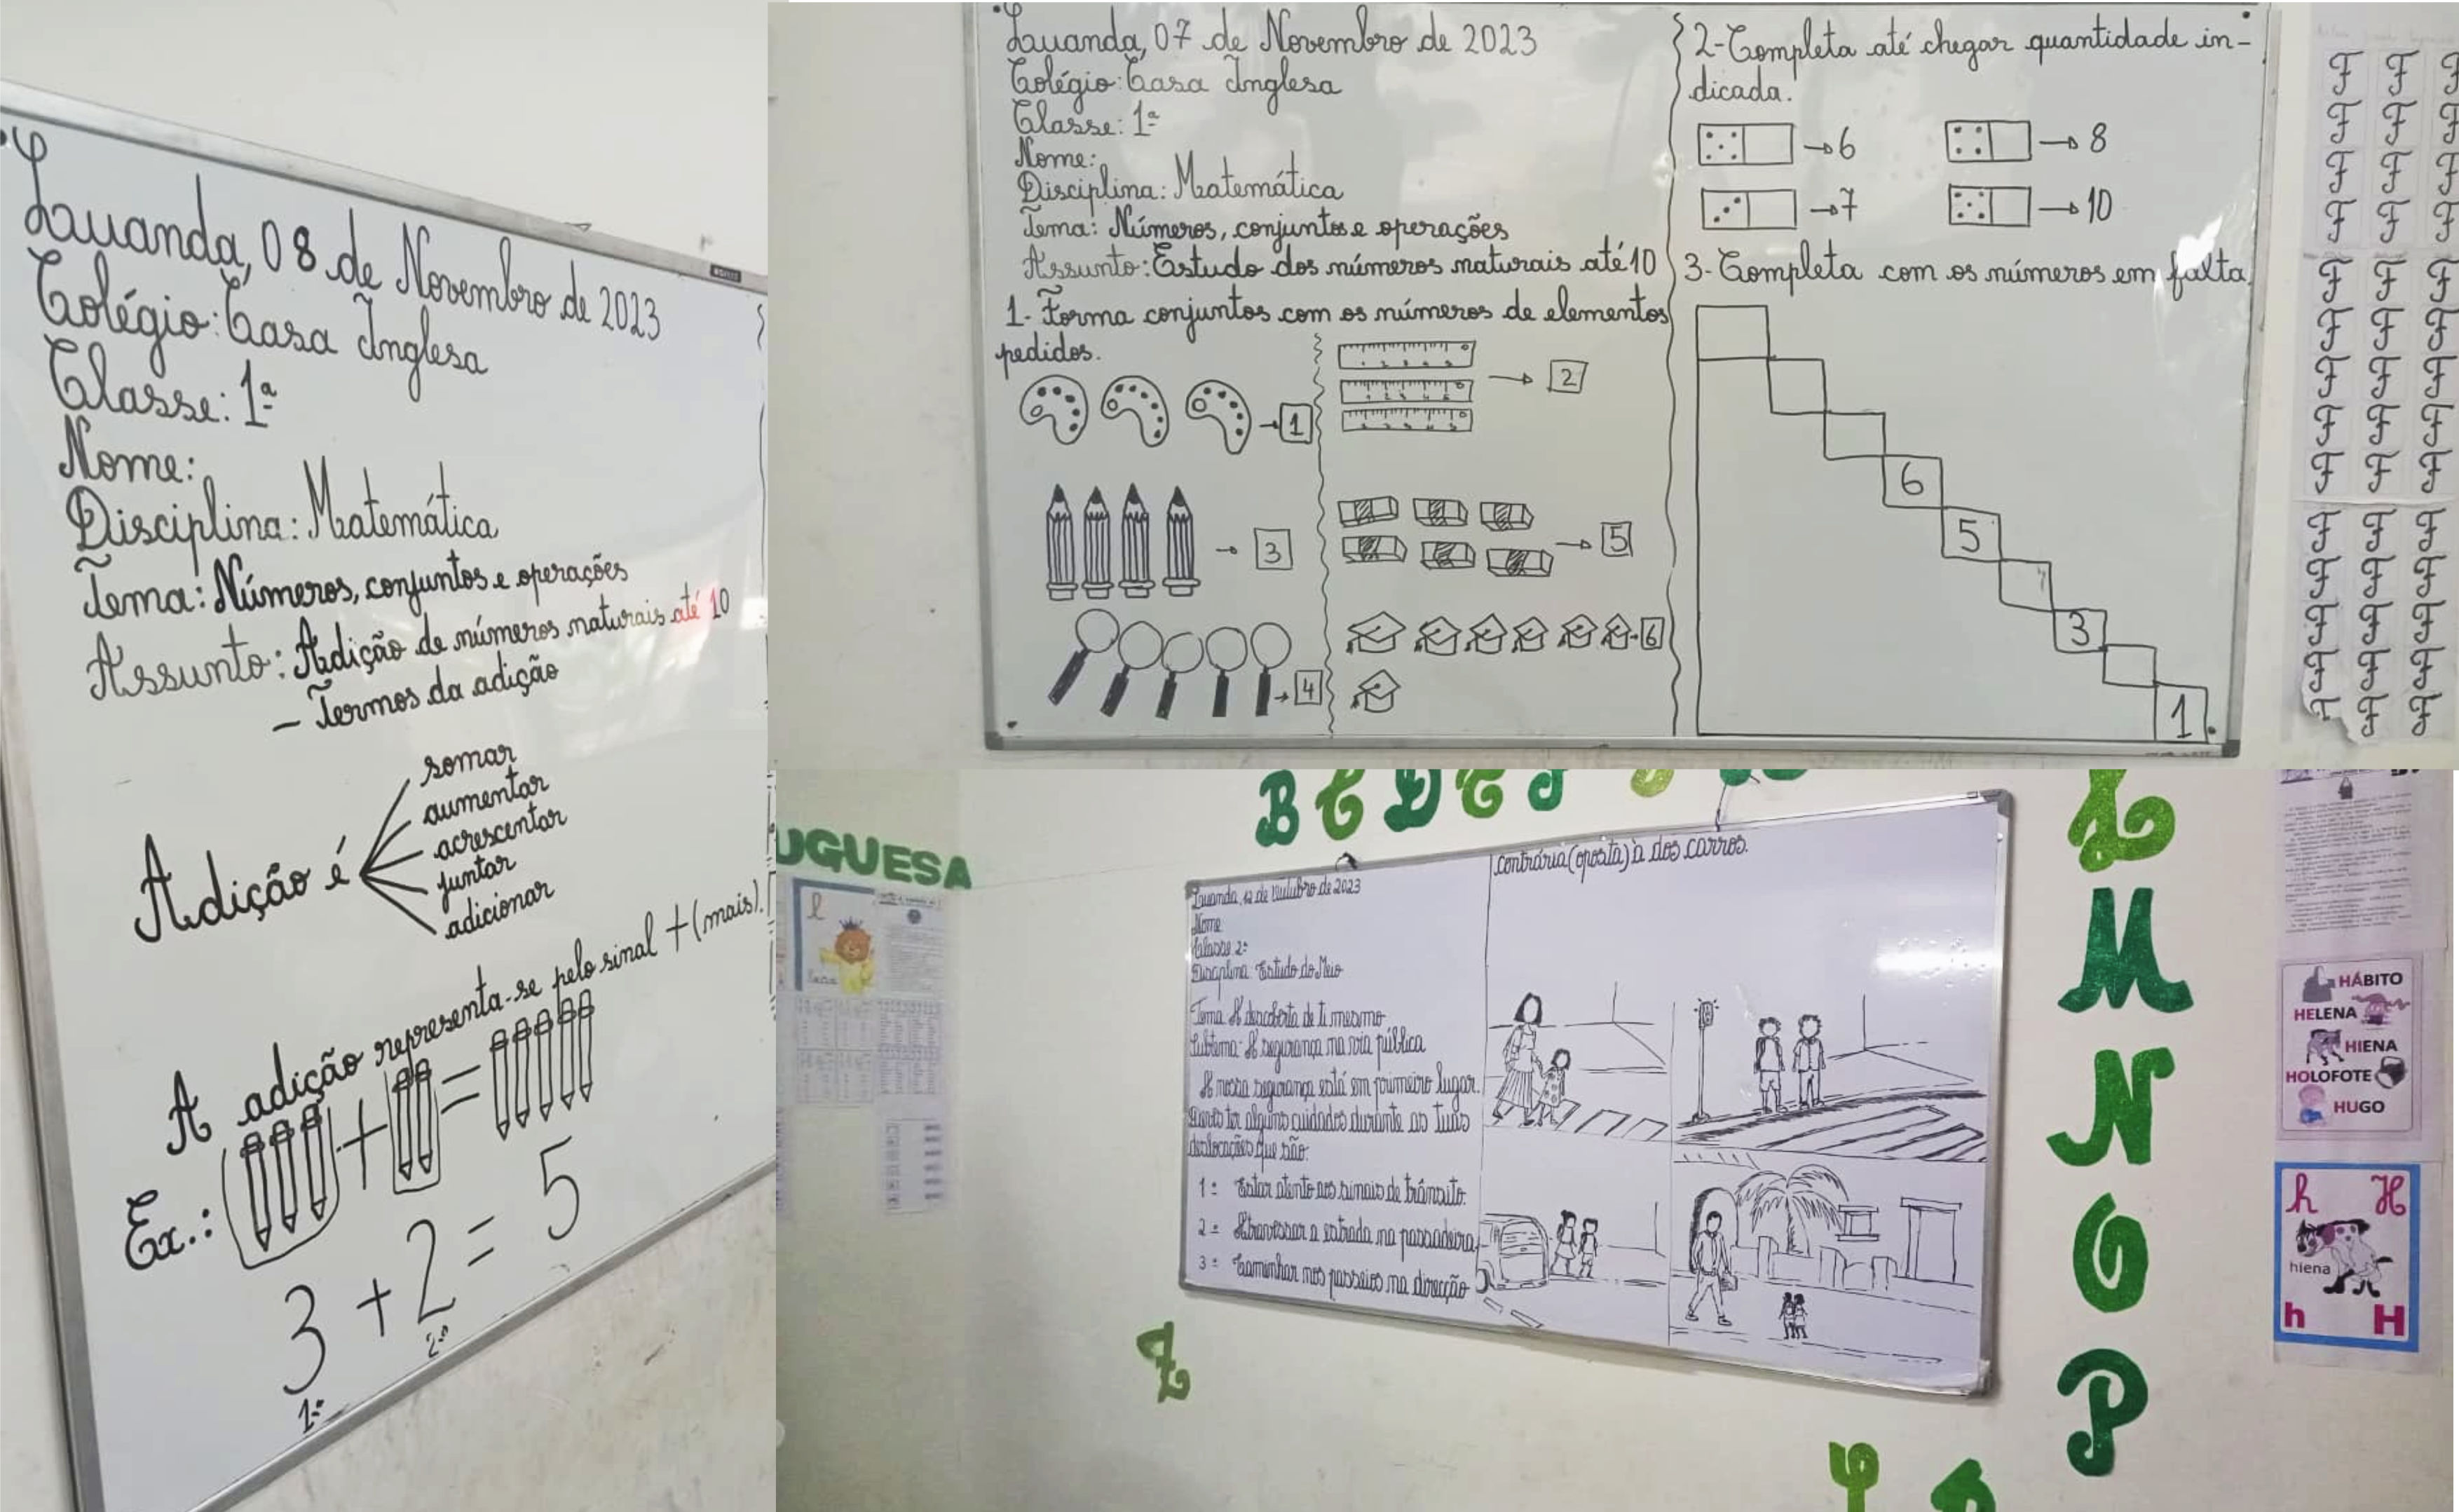 Luanda, 08 de Novembro de 2023
Colégio: Casa Inglesa
Classe: 1ª
Nome:
Disciplina: Matemática
Tema: Números, conjuntos e operações
Assunto: Adição de números naturais até 10
- Termos da adição
Adição é
somar
aumentar
acrescentar
juntar
adicionar
A adição representa-se pelo sinal + (mais).
Ex.: + =
3 + 2 = 5
1º 2º
Luanda, 07 de Novembro de 2023
Colégio: Casa Inglesa
Classe: 1ª
Nome:
Disciplina: Matemática
Tema: Números, conjuntos e operações
Assunto: Estudo dos números naturais até 10
1- Forma conjuntos com os números de elementos
pedidos.
→ 1
→ 2
→ 3
→ 5
→ 4
→ 6
2- Completa até chegar quantidade in-
dicada.
→ 6
→ 8
→ 7
→ 10
3- Completa com os números em falta.
6
5
3
1
UGUESA
l
B C D E F
Luanda, 12 de Outubro de 2023
Nome
Classe 2ª
Disciplina Estudo do Meio
Tema A descoberta de ti mesmo
Subtema: A segurança na via pública
A nossa segurança está em primeiro lugar.
Deves ter alguns cuidados durante as tuas
deslocações que são:
1º Estar atento aos sinais de trânsito.
2º Atravessar a estrada na passadeira.
3º Caminhar nos passeios na direcção
contrária (oposta) à dos carros.
L
M
N
O
P
Z
HÁBITO
HELENA
HIENA
HOLOFOTE
HUGO
h H
hiena
h H